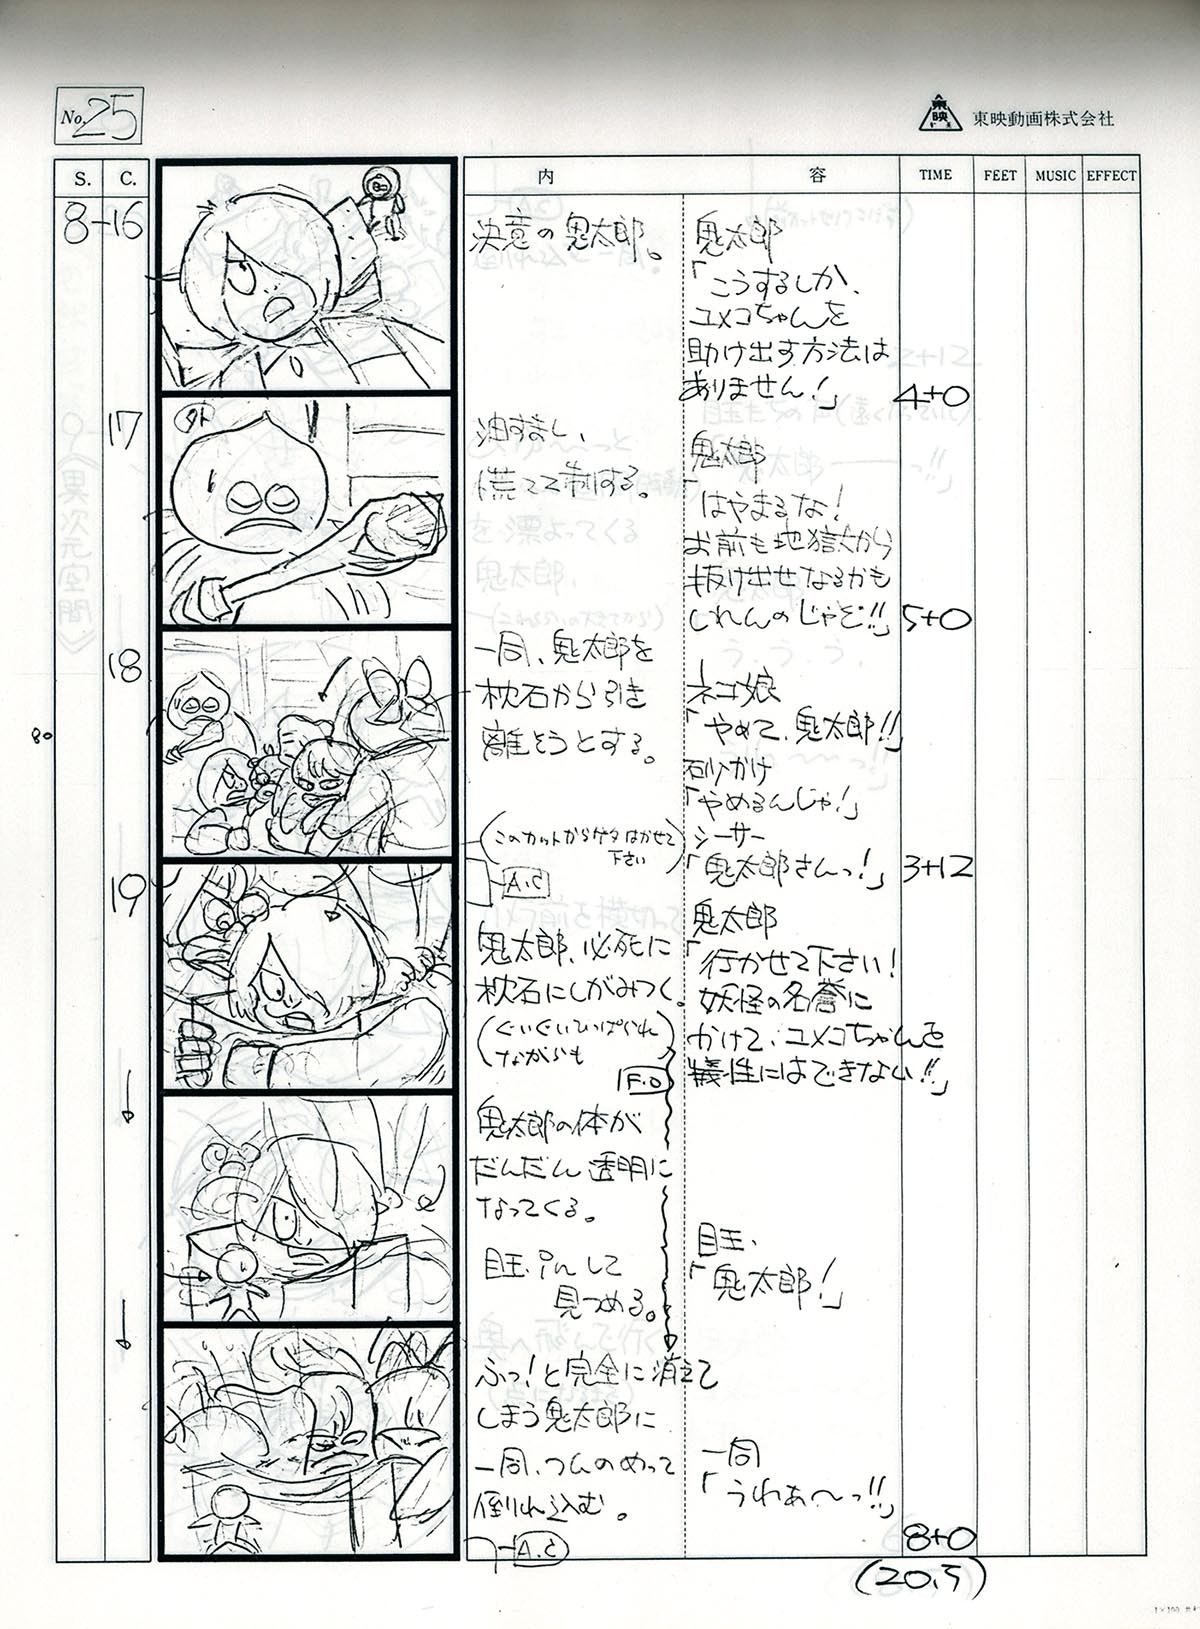 No. 25
東映
東映動画株式会社
S. C. 内 容 TIME FEET MUSIC EFFECT
8-16
決意の鬼太郎。
鬼太郎
「こうするしか、
ユメコちゃんを
助け出す方法は
ありません!」
4+0
17
油すまし、
慌てて制する。
鬼太郎
「はやまるな!
お前も地獄から
抜け出せなるかも
しれんのじゃぞ!!」
5+0
18
一同、鬼太郎を
枕石から引き
離そうとする。
(このカットからゲタはかせて
下さい)
A.C
ネコ娘
「やめて、鬼太郎!!」
砂かけ
「やめるんじゃ!」
シーサー
「鬼太郎さんっ!」
3+12
80
19
鬼太郎、必死に
枕石にしがみつく。
(ぐいぐいひっぱられ
ながらも
F.O
鬼太郎
「行かせて下さい!
妖怪の名誉に
かけて、ユメコちゃんを
犠牲にはできない!!」
鬼太郎の体が
だんだん透明に
なってくる。
目玉、
「鬼太郎!」
見つめる。
ふっ!と完全に消えて
しまう鬼太郎に
一同、つんのめって
倒れ込む。
A.C
一同
「うわぁ〜っ!!」
8+0
(20.5)